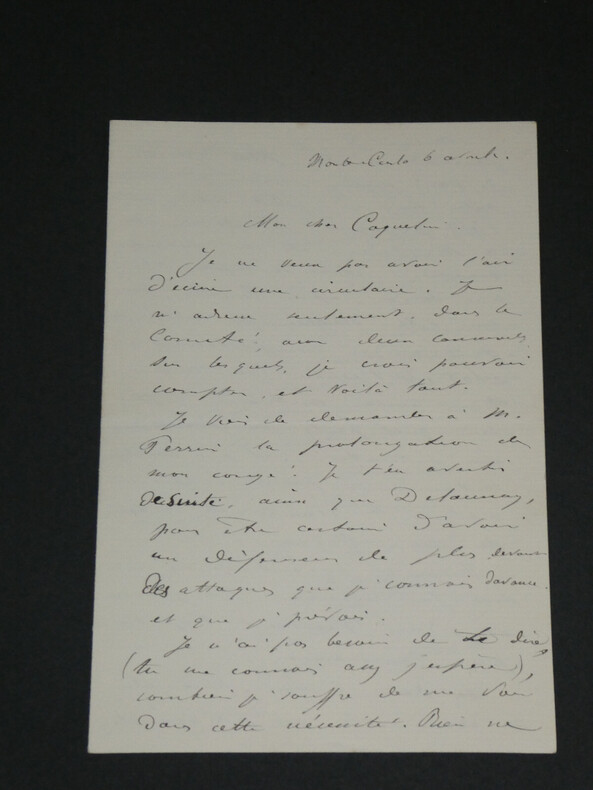 Monte Carlo 6 avril.
Mon cher Coquelin.
Je ne veux pas avoir l'air
d'écrire une circulaire. Je
m'adresse seulement, dans le
Comité, aux deux camarades
sur lesquels, je crois pouvoir
compter, et voilà tout.
Je viens de demander à M.
Perrin la prolongation de
mon congé. Je t'en avertis
de suite, ainsi que Delaunay,
pour être certain d'avoir
un défenseur de plus devant
des attaques que je connais d'avance
et que je prévois.
Je n'ai pas besoin de te dire,
(tu me connais assez j'espère),
combien je souffre de me voir
dans cette nécessité. Rien ne